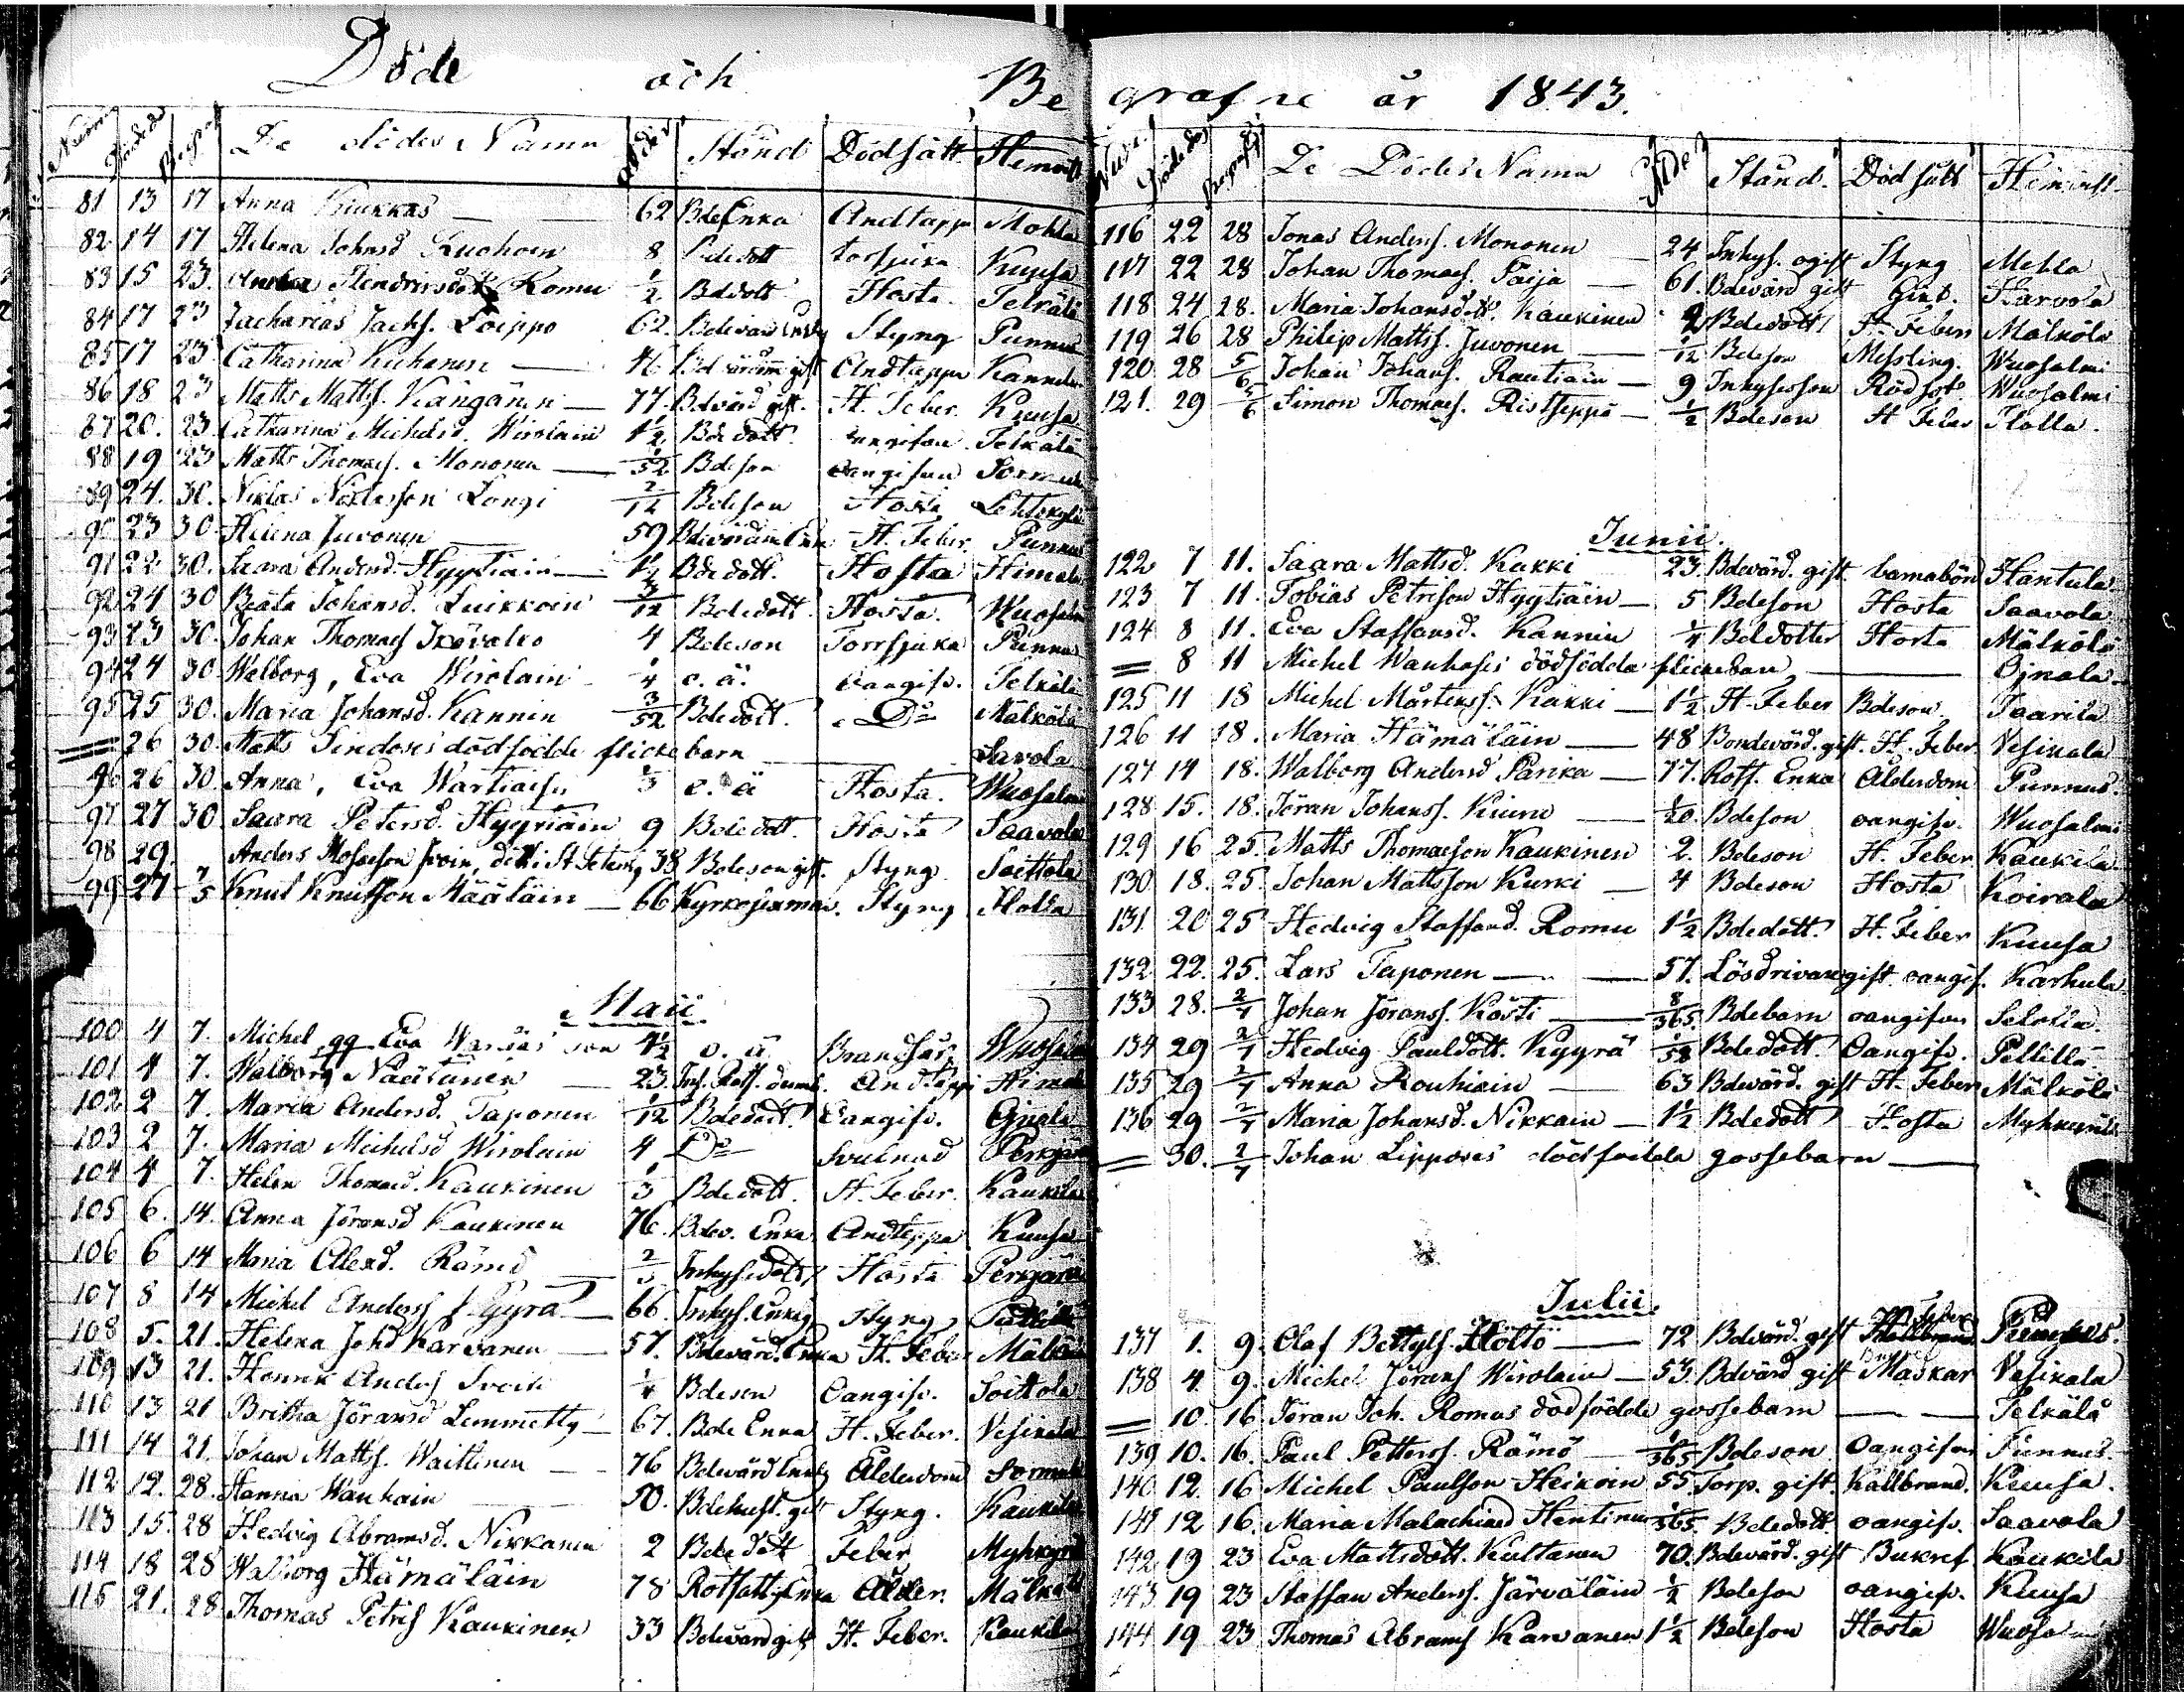 Döde och Be
De dödes Namn Ålder Stånd Dödsätt Hemvist
81 13 17 Anna Kiukkas — — 62 Bde Enka Andtäppa Mohla
82 14 17 Helena Johansd Kuohoin 8 Bdedott torrsjuka Kuusa
83 15 23. Hendriksdott Komu 1/2 Bdedott Hosta Telkälä
84 17 23 Zacharias Zachs. Loippo 62. Bdevärd Enkl Styng Punnus
85 17 23 Catharina — 46 Bdvärdinn gift Andtäppa
86 18 23 Matts Matts. Kängänen — 77. Bdevärd gift. H. Feber. Kuusa
87 20. 23 Catharina Michelsd. Wirolain 1 1/2 Bdedott. oangifven Telkälä
88 19 23 Matts Thomaes. Mononen — 1/52 Bdeson oangifven Sormula
89 24. 30. Niklas Niklasson Longi 2/12 Bdeson Hosta Lehtokylä
90 23 30. Helena Juvonen — 59 Bdevärdinn Enka H. Feber. Punnus
91 22 30. Saara Andersd. Hyytiäin — Bdedott. Hosta Himala
92 24 30 Beata Johansd. Luikkoin 3/12 Bdedott. Hosta. Wuosalmi
93 23 30. Johan Thomaes 4 Bdeson Torrsjuka Punnus
94 24 30 Walborg, Eva Wirolain 1/4 o. ä. oangifv. Telkälä
95 25 30. Maria Johansd. Kannin 3/52 Bdedott. Do Mälkölä
= 26 30. Matts Sindoses dödfödde flickebarn — Savola
96 26 30. Anna, Eva Wartiaisen 1/3 o. ä Hosta. Wuosalmi
97 27 30 Saara Petersd. Hyytiäin 9 Bdedott. Hosta Saavola
98 29. " Anders Mosesson Ivoin, död i St. Petersb. 38 Bdeson gift. Styng Soittola
99 27 7/5 Knut Knutsson Määläin — 66 Kyrkojunma. Styng Holla
Maii
100 4 7. Michel, qq Eva Wanhas' son 1 1/2 o. ä. Brandsår Wuosalmi
101 4 7. Walborg Näätänen — 23. Andtäppa Himala
102 2 7. Maria Andersd. Taponen 1/12 Bdedott. Oangifv. Ojnala
103 2 7. Maria Michelsd Wirolain 4 Do Svulnad Perkjärvi
104 4 7. Helen Thomaed. Kaukinen 1/3 Bdedott. H. Feber. Kaukila
105 6. 14. Anna Jöransd Kaukinen 76. Bdev. Enka Andtäppa Kuusa
106 6 14 Maria Alexd. Rämö — 2/3 Inhysedott Hosta Perkjärvi
107 8 14 Michel Anderss Kyyrä — 66 Inhys. Enkl Styng
108 5. 21. Helena Johd Karvanen — 57. Bdevärd. Enka H. Feber Mälkölä
109 13 21. Henrik Anders 1/4 Bdeson Oangifv. Soittola
110 13 21 Britha Jöransd Lemmetty — 67. Bde Enka H. Feber. Vesikala
111 14 21. Johan Matts. Waittinen — 76 Bdevärd Enkl Ålderdom Sormula
112 12. 28. Hanna Wanhain 50. Bdehust. gift Styng. Kaukila
113 15. 28 Hedvig Abramsd. Nikkanen 2 Bdedott Feber Myhkyrilä
114 18 28 Walborg Hämäläin 78 Rotfatt. Enka Ålder. Mälkölä
115 21. 28 Thomas Petris Kaukinen 33 Bdevärd gift H. Feber. Kaukila
grafne år 1843.
De Dödes Namn Ålder Stånd. Dödsätt Hemvist.
116 22 28 Jonas Anders. Mononen — 24 Inhys. ogift Styng Mohla
117 22 28 Johan Thomaes. Paija — 61. Bdevärd gift Gikt. Harvola
118 24 28. Maria Johansdott. Kaukinen 2 Bdedott H. Feber Mälkölä
119 26 28 Philip Mattss. Juvonen — 1/12 Bdeson Messling. Wuosalmi
120. 28 5/6 Johan Johans. Rautiain — 9 Inhysesson Rödsot. Wuosalmi
121. 29 5/6 Simon Thomaes. Ristseppä — 1/2 Bdeson H Feber Holla.
Junii.
122 7 11. Saara Mattsd. Kukki 23. Bdevärd. gift barnabörd Hantula
123 7 11. Tobias Petrison Hyytiäin — 5 Bdeson Hosta Saavola
124 8 11. Eva Staffansd. Kannin 1/4 Bdedotter Hosta Mälkölä
= 8 11 Michel Wanhases dödfödda flickebarn — Ojnala
125 11 18 Michel Mårtenss. Kukki — 1 1/2 H. Feber Bdeson Taarila
126 11 18. Maria Hämäläin — 48 Bondevärd. gift. H. Feber. Vesikala
127 14 18. Walborg Andersd Parika — 77. Rotf. Enka Ålderdom Punnus.
128 15. 18. Jöran Johanss. Kiuru — 1/20. Bdeson oangifv. Wuosalmi
129 16 25. Matts Thomaeson Kaukinen 2. Bdeson H. Feber Kaukila
130 18. 25. Johan Mattsson Kurki — 4 Bdeson Hosta Koirala
131. 20 25 Hedvig Staffansd. Romu 1 1/2 Bdedott. H. Feber Kuusa
132. 22. 25. Lars Taponen — — 57. Lösdrivare gift oangif. Karhula
133 28. 2/7 Johan Jöranss. Kösti — 8/365. Bdebarn oangifven
134 29 2/7 Hedvig Pauldott. Kyyrä 1/52 Bdedott. Oangifv. Pellilä
135 29 2/7 Anna Rouhiain — 63 Bdevärd. gift H. Feber Mälkölä
136 29 2/7 Maria Johansd. Nikkain — 1 1/2 Bdedott Hosta Myhkyrilä
= 30. 2/7 Johan Lipposes dödfödda gossebarn —
Julii.
137 1. 9. Olaf Bettyls. Höltö — 72 Bdvärd. gift Feber Punnus.
138 4. 9. Michel Jörans Wirolain — 53. Bdvärd gift Maskar Vesikala
= 10. 16. Jöran Joh. Romus dödfödde gossebarn — — Telkälä
139 10. 16. Paul Petterss. Rämö 1/365 Bdeson Oangifven Punnus
140. 12. 16 Michel Paulsson Heikoin 55 Torp. gift. Kallbrand. Kuusa.
141 12 16. Maria Malachiasd Hentinen 1/365. Bdedott oangifv. Saavola
142 19 23 Eva Mattsdott. Kultanen 70. Bdevärd. gift Bukref Kaukila
143 19 23 Staffan Anderss. Järväläin 1/2 Bdeson oangifv. Kuusa
144 19 23 Thomas Abrams Karvanen 1 1/2 Bdeson Hosta